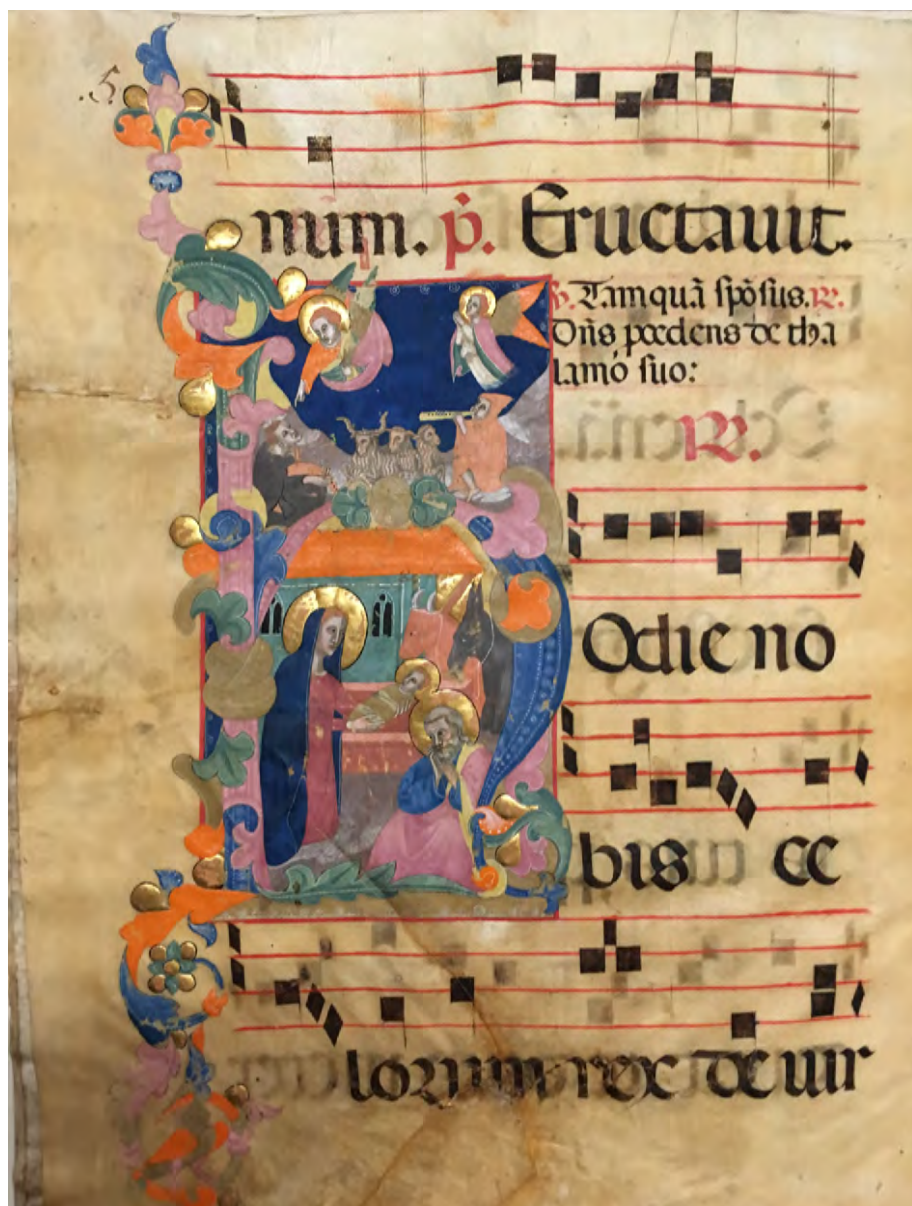 num. p̄. Eructauit.
℣. Tamquā spōsus. ℟.
Dn̄s p̄cedens de tha
lamo suo:
℟.
Odie no
bis ce
lorum rex de uir